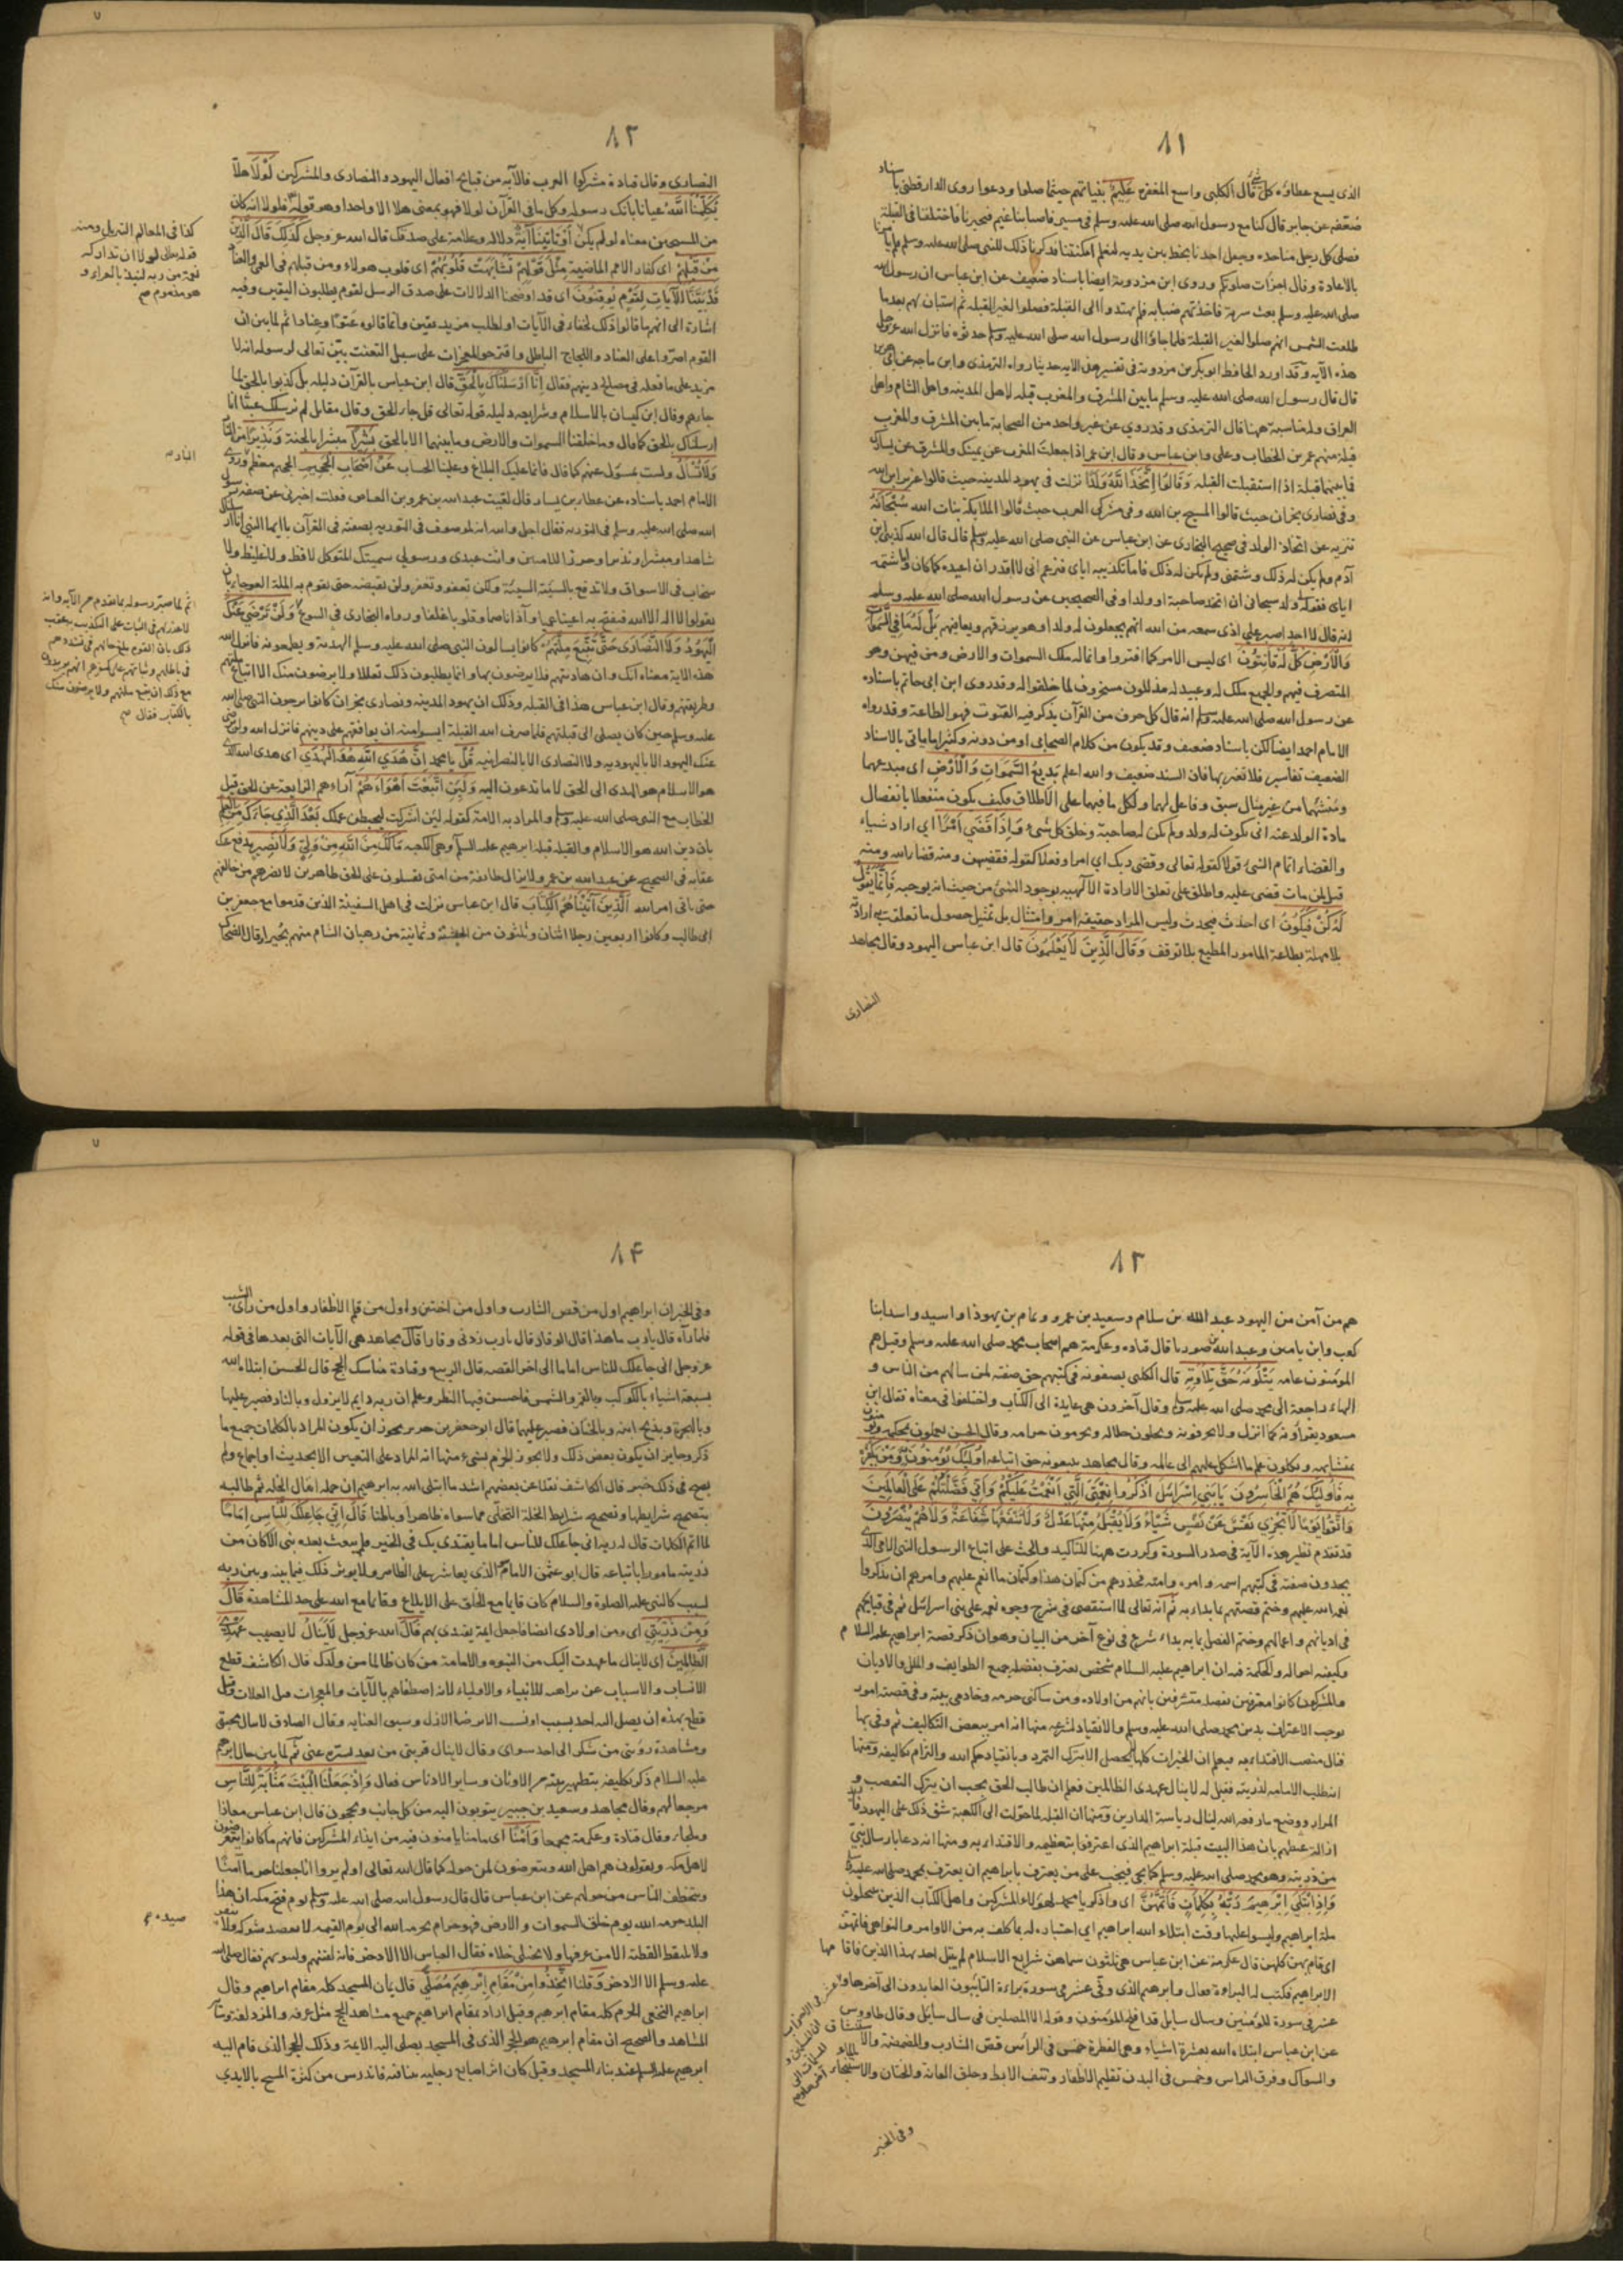 ٨١
الذى يسع عطاؤه كل شئ قال الكلبى واسع المغفرة عَلِيمٌ بنياتهم حيثما صلوا ودعوا روى الدارقطنى باسناد
ضعفه عن جابر قال كنا مع رسول الله صلى الله عليه وسلم فى مسير فاصابنا غيم فتحيرنا فاختلفنا فى القبلة
فصلى كل رجل منا حده وجعل احدنا يخط بين يديه لنعلم امكنتنا فذكرنا ذلك للنبى صلى الله عليه وسلم فلم يأمرنا
بالاعادة وقال اجزأت صلوتكم وروى ابن مردويه ايضا باسناد ضعيف عن ابن عباس ان رسول الله
صلى الله عليه وسلم بعث سرية فاخذتهم ضبابة فلم يهتدوا الى القبلة فصلوا لغير القبلة ثم استبان لهم بعد ما
طلعت الشمس انهم صلوا لغير القبلة فلما جاؤا الى رسول الله صلى الله عليه وسلم حدثوه فانزل الله عز وجل
هذه الآية وقد اورد الحافظ ابو بكر بن مردويه فى تفسير هذه الآية حديثا رواه الترمذى وابن ماجه عن ابى هريرة
قال قال رسول الله صلى الله عليه وسلم ما بين المشرق والمغرب قبلة لاهل المدينة واهل الشام واهل
العراق وله مناسبة ههنا قال الترمذى وقد روي عن غير واحد من الصحابة ما بين المشرق والمغرب
قبلة منهم عمر بن الخطاب وعلى وابن عباس وقال ابن عمر اذا جعلت المغرب عن يمينك والمشرق عن يسارك
فما بينهما قبلة اذا استقبلت القبلة وَقَالُوا اتَّخَذَ اللَّهُ وَلَدًا نزلت فى يهود المدينة حيث قالوا عزير ابن الله
وفى نصارى نجران حيث قالوا المسيح بن الله وفى مشركى العرب حيث قالوا الملائكة بنات الله سُبْحَانَهُ
تنزيه عن اتخاذ الولد فى صحيح البخارى عن ابن عباس عن النبى صلى الله عليه وسلم قال قال الله كذبنى ابن
آدم ولم يكن له ذلك وشتمنى ولم يكن له ذلك فاما تكذيبه اياى فزعم انى لا اقدر ان اعيده كما كان واما شتمه
اياى فقوله لى ولد سبحانى ان اتخذ صاحبة او ولدا وفى الصحيحين عن رسول الله صلى الله عليه وسلم
انه قال لا احد اصبر على اذى سمعه من الله انهم يجعلون له ولدا وهو يرزقهم ويعافيهم بَلْ لَهُ مَا فِي السَّمَوَاتِ
وَالْأَرْضِ كُلٌّ لَهُ قَانِتُونَ اى ليس الامر كما افتروا وانما له ملك السموات والارض ومن فيهن وهو
المتصرف فيهم والجميع ملك له وعبيد له مذللون مسخرون لما خلقوا له وقد روى ابن ابى حاتم باسناده
عن رسول الله صلى الله عليه وسلم انه قال كل حرف من القرآن يذكر فيه القنوت فهو الطاعة وقد رواه
الامام احمد ايضا لكن باسناد ضعيف وقد يكون من كلام الصحابى او من دونه وكثيرا ما ياتى بالاسناد
الضعيف تفاسير فلا تغتر بها فان السند ضعيف والله اعلم بَدِيعُ السَّمَوَاتِ وَالْأَرْضِ اى مبدعهما
ومنشئهما من غير مثال سبق وفاعل لهما ولكل ما فيهما على الاطلاق فكيف يكون منفعلا بانفصال
مادة الولد عنه انى يكون له ولد ولم يكن له صاحبة وخلق كل شئ وَإِذَا قَضَى أَمْرًا اي اراد شيئا
والقضاء اتمام الشئ قولا كقوله تعالى وقضى ربك اى امر او فعلا كقوله فقضيهن ومنه قضاء الله ومنه
قيل لمن مات قضى عليه واطلق على تعلق الارادة الآلهية بوجود الشئ من حيث انه يوجبه فَإِنَّمَا يَقُولُ
لَهُ كُنْ فَيَكُونُ اى احدث فيحدث وليس المراد حقيقة امر وامتثال بل تمثيل حصول ما تعلقت به ارادته
بلا مهلة بطاعة المامور المطيع بلا توقف وَقَالَ الَّذِينَ لَا يَعْلَمُونَ قال ابن عباس اليهود وقال مجاهد
النصارى
٨٢
النصارى وقال قتادة مشركوا العرب فالآية من قبائح افعال اليهود والنصارى والمشركين لَوْلَا هلا
يُكَلِّمُنَا اللَّهُ عيانا بانك رسوله وكل ما فى القرآن لولا فهو بمعنى هلا الا واحدا وهو قوله فلولا انه كان
من المسبحين معناه لو لم يكن أَوْ تَأْتِينَا آيَةٌ دلالة وعلامة على صدقك قال الله عز وجل كَذَلِكَ قَالَ الَّذِينَ
مِنْ قَبْلِهِمْ اى كفار الامم الماضية مِثْلَ قَوْلِهِمْ تَشَابَهَتْ قُلُوبُهُمْ اى قلوب هولاء ومن قبلهم فى العمى والعناد
قَدْ بَيَّنَّا الْآيَاتِ لِقَوْمٍ يُوقِنُونَ اى قد اوضحنا الدلالات على صدق الرسل لقوم يطلبون اليقين وفيه
اشارة الى انهم ما قالوا ذلك لخفاء فى الآيات او لطلب مزيد يقين وانما قالوه عتوا وعنادا ثم لما بين ان
القوم اصروا على العناد واللجاج الباطل واقترحوا المعجزات على سبيل التعنت بين تعالى لرسوله انه لا
مزيد على ما فعله فى مصالح دينهم فقال إِنَّا أَرْسَلْنَاكَ بِالْحَقِّ قال ابن عباس بالقرآن دليله بل كذبوا بالحق لما
جاءهم وقال ابن كيسان بالاسلام وشرايعه دليله قوله تعالى قل جاء الحق وقال مقاتل لم نرسلك عبثا انما
ارسلناك بالحق كما قال وما خلقنا السموات والارض وما بينهما الا بالحق بَشِيرًا مبشرا بالجنة وَنَذِيرًا من النار
وَلَا تُسْأَلُ ولست بمسؤل عنهم كما قال فانما عليك البلاغ وعلينا الحساب عَنْ أَصْحَابِ الْجَحِيمِ الجحيم معظم النار وروى
الامام احمد باسناده عن عطاء بن يسار قال لقيت عبد الله بن عمرو بن العاص فقلت اخبرنى عن صفة رسول
الله صلى الله عليه وسلم فى التورية فقال اجل والله انه لموصوف فى التورية بصفته فى القرآن يا ايها النبى انا ارسلناك
شاهدا ومبشرا ونذيرا وحرزا للاميين وانت عبدى ورسولي سميتك المتوكل لا فظ ولا غليظ ولا
سخاب فى الاسواق ولا تدفع بالسيئة السيئة ولكن تعفو وتغفر ولن نقبضه حتى نقوم به الملة العوجاء بان
يقولوا لا اله الا الله فنفتح به اعينا عميا وآذانا صما وقلوبا غلفا ورواه البخارى فى البيوع وَلَنْ تَرْضَى عَنْكَ
الْيَهُودُ وَلَا النَّصَارَى حَتَّى تَتَّبِعَ مِلَّتَهُمْ كانوا يسالون النبى صلى الله عليه وسلم الهدنة ويطمعونه فانزل الله
هذه الآية معناه انك وان هادنتهم فلا يرضون بها وانما يطلبون ذلك تعللا ولا يرضون منك الا اتباع ملتهم
وطريقتهم وقال ابن عباس هذا فى القبلة وذلك ان يهود المدينة ونصارى نجران كانوا يرجون النبى صلى الله
عليه وسلم حين كان يصلى الى قبلتهم فلما صرف الله القبلة ايسوا منه ان يوافقهم على دينهم فانزل الله ولن ترضى
عنك اليهود الا باليهودية ولا النصارى الا بالنصرانية قُلْ يا محمد إِنَّ هُدَى اللَّهِ هُوَ الْهُدَى اى هدى الله الذى
هو الاسلام هو الهدى الى الحق لا ما تدعون اليه وَلَئِنِ اتَّبَعْتَ أَهْوَاءَهُمْ آراءهم الزايغة عن الحق قيل
الخطاب مع النبى صلى الله عليه وسلم والمراد به الامة كقوله لئن اشركت ليحبطن عملك بَعْدَ الَّذِي جَاءَكَ مِنَ الْعِلْمِ
بان دين الله هو الاسلام والقبلة قبلة ابرهيم عليه السلام وهى الكعبة مَا لَكَ مِنَ اللَّهِ مِنْ وَلِيٍّ وَلَا نَصِيرٍ يدفع عنك
عقابه فى الصحيح عن عبد الله بن عمرو لا تزال طائفة من امتى يقتتلون على الحق ظاهرين لا يضرهم من خالفهم
حتى ياتى امر الله الَّذِينَ آتَيْنَاهُمُ الْكِتَابَ قال ابن عباس نزلت فى اهل السفينة الذين قدموا مع جعفر بن
ابى طالب وكانوا اربعين رجلا اثنان وثلثون من الحبشة وثمانية من رهبان الشام منهم بحيرا وقال الضحاك
كذا فى المعالم التنزيل ومنه
قوله تعالى لولا ان تداركه
نعمة من ربه لنبذ بالعراء و
هو مذموم صح
النار صح
ثم لما صبر رسوله بما تقدم من الآية وانه
لا عذر لهم فى الثبات على التكذيب به عقب
ذلك بان القوم بلغ حالهم فى تشددهم
فى باطلهم وثباتهم على كفرهم انهم يريدون
مع ذلك ان يتبع ملتهم ولا يرضون منك
بالكتاب فقال صح
٨٣
هم من آمن من اليهود عبد الله بن سلام وسعيد بن عمرو وتمام بن يهودا واسيد واسد ابنا
كعب وابن يامين وعبد الله بن صوريا قال قتادة وعكرمة هم اصحاب محمد صلى الله عليه وسلم وقيل هم
المؤمنون عامة يَتْلُونَهُ حَقَّ تِلَاوَتِهِ قال الكلبى يصفونه فى كتبهم حق صفته لمن سالهم من الناس و
الهاء راجعة الى محمد صلى الله عليه وسلم وقال آخرون هى عايدة الى الكتاب واختلفوا فى معناه فقال ابن
مسعود يقرأونه كما انزل ولا يحرفونه ويحلون حلاله ويحرمون حرامه وقال الحسن يعملون بمحكمه ويؤمنون
بمتشابهه ويكلون علم ما اشكل عليهم الى عالمه وقال مجاهد يتبعونه حق اتباعه أُولَئِكَ يُؤْمِنُونَ بِهِ وَمَنْ يَكْفُرْ
بِهِ فَأُولَئِكَ هُمُ الْخَاسِرُونَ يَا بَنِي إِسْرَائِيلَ اذْكُرُوا نِعْمَتِيَ الَّتِي أَنْعَمْتُ عَلَيْكُمْ وَأَنِّي فَضَّلْتُكُمْ عَلَى الْعَالَمِينَ
وَاتَّقُوا يَوْمًا لَا تَجْزِي نَفْسٌ عَنْ نَفْسٍ شَيْئًا وَلَا يُقْبَلُ مِنْهَا عَدْلٌ وَلَا تَنْفَعُهَا شَفَاعَةٌ وَلَا هُمْ يُنْصَرُونَ
قد تقدم نظير هذه الآية فى صدر السورة وكررت ههنا للتاكيد والحث على اتباع الرسول النبى الامى الذى
يجدون صفته فى كتبهم اسمه وامره وامته فحذرهم من كتمان هذا وكتمان ما انعم عليهم وامرهم ان يذكروا
نعم الله عليهم وختم قصتهم بما بداء به ثم انه تعالى لما استقصى فى شرح وجوه نعمه على بنى اسرائيل ثم فى قبايحهم
فى اديانهم واعمالهم وختم الفصل بما به بداء شرع فى نوع آخر من البيان وهو ان ذكر قصة ابراهيم عليه السلام
وكيفية احواله والحكمة فيه ان ابراهيم عليه السلام شخص يعترف بفضله جميع الطوايف والملل والاديان
والمشركون كانوا معترفين بفضله متشرفين بانهم من اولاده ومن ساكنى حرمه وخادمى بيته وفى قصته امور
توجب الاعتراف بدين محمد صلى الله عليه وسلم والانقياد لشرعه منها انه امر ببعض التكاليف ثم وفى بها
فنال منصب الاقتداء به فيعلم ان الخيرات كلها لا يحصل الا بترك التمرد وبانقياد حكم الله والتزام تكاليفه ومنها
انه طلب الامامة لذريته فقيل له لا ينال عهدى الظالمين فعلم ان طالب الحق يجب ان يترك التعصب و
المراء ووضع ما رفعه الله لينال رياسة الدارين ومنها ان القبلة لما حولت الى الكعبة شق ذلك على اليهود
ازالة غيظهم بان هذا البيت قبلة ابراهيم الذى اعترفوا بتعظيمه والاقتداء به ومنها انه دعا بارسال نبى
من ذريته وهو محمد صلى الله عليه وسلم كما يجئ فيجب على من يعترف بابراهيم ان يعترف بمحمد صلى الله عليه وسلم
وَإِذِ ابْتَلَى إِبْرَهِيمَ رَبُّهُ بِكَلِمَاتٍ فَأَتَمَّهُنَّ اى واذكر يا محمد لهؤلاء المشركين واهل الكتاب الذين ينتحلون
ملة ابراهيم وليسوا عليها وقت ابتلاء الله ابراهيم اي اختباره له بما كلف به من الاوامر والنواهى فاتمهن
اى قام بهن كلهن قال عكرمة عن ابن عباس هى ثلثون سهما هن شرايع الاسلام لم يبتل احد بهذا الدين فاقامها
الا ابراهيم فكتب له البراءة فقال وابرهيم الذى وفى عشر فى سورة براءة التائبون العابدون الى آخرها و
عشر فى سورة المؤمنين وسال سايل قد افلح المؤمنون وقوله الا المصلين فى سال سايل وقال طاووس
عن ابن عباس ابتلاء الله بعشرة اشياء وهى الفطرة خمس فى الراس قص الشارب والمضمضة والاستنشاق
والسواك وفرق الراس وخمس فى البدن تقليم الاظفار ونتف الابط وحلق العانة والختان والاستنجاء بالماء
عشر فى الاحزاب
ان المسلمين و
المسلمات الى
آخرها
وفى الخبر
٨٤
وفى الخبر ان ابراهيم اول من قص الشارب واول من اختتن واول من قلم الاظفار واول من رأى الشيب
فلما رآه قال يا رب ما هذا قال الوقار قال يا رب زدنى وقارا قال مجاهد هى الآيات التى بعدها فى قوله
عز وجل انى جاعلك للناس اماما الى اخر القصة قال الربيع وقتادة مناسك الحج قال الحسن ابتلاه الله
بسبعة اشياء بالكوكب وبالقمر والشمس فاحسن فيها النظر وعلم ان ربه دايم لا يزول وبالنار فصبر عليها
وبالهجرة وبذبح ابنه وبالختان فصبر عليها قال ابو جعفر بن جرير يجوز ان يكون المراد بالكلمات جميع ما
ذكر وجايز ان يكون بعض ذلك ولا يجوز الجزم بشئ منها انه المراد على التعيين الا بحديث او اجماع ولم
يصح فى ذلك خبر قال الكاشف نقلا عن بعضهم اشد ما ابتلى الله به ابرهيم ان حمله اثقال الخلة ثم طالبه
بتصحيح شرايطها وتصحيح شرايط الخلة التخلى مما سواه ظاهرا وباطنا قَالَ إِنِّي جَاعِلُكَ لِلنَّاسِ إِمَامًا
لما اتم الكلمات قال له ربه انى جاعلك للناس اماما يقتدى بك فى الخير فلم يبعث بعده نبى الا كان من
ذريته مامورا باتباعه قال ابو عثمن الامام هو الذي يعاشر على الظاهر ولا يوثر ذلك فيما بينه وبين ربه
بسبب كالنبى عليه الصلوة والسلام كان قايما مع الخلق على الابلاغ وقايما مع الله على حد المشاهدة قَالَ
وَمِنْ ذُرِّيَّتِي اى ومن اولادى ايضا فاجعل ايمة يقتدى بهم قَالَ الله عز وجل لَا يَنَالُ لا يصيب عَهْدِي
الظَّالِمِينَ اى لا ينال ما عهدت اليك من النبوة والامامة من كان ظالما من ولدك قال الكاشف قطع
الانساب والاسباب عن الانبياء والاولياء لانه اصطفاهم بالآيات والمعجزات قبل العلات وقيل
قطع بهذه ان يصل اليه احد بسبب او نسب الا برضا الازل وسبق العناية وقال الصادق لا ينال
ومشاهدة رؤيتى من سكن الى احد سواى وقال لا ينال قربتى من بعد عنى ثم لما بين حال ابرهيم
عليه السلام ذكر تكليفه بتطهير بيته من الاوثان وساير الادناس فقال وَإِذْ جَعَلْنَا الْبَيْتَ مَثَابَةً لِلنَّاسِ
مرجعا لهم وقال مجاهد وسعيد بن جبير يثوبون اليه من كل جانب ويحجون قال ابن عباس معاذا
وملجاء وقال قتادة وعكرمة مجمعا وَأَمْنًا اى مامنا يامنون فيه من ايذاء المشركين فانهم ما كانوا يتعرضون
لاهل مكة ويقولون هم اهل الله ويتعرضون لمن حوله كما قال الله تعالى او لم يروا انا جعلنا حرما آمنا
ويتخطف الناس من حولهم عن ابن عباس قال قال رسول الله صلى الله عليه وسلم يوم فتح مكة ان هذا
البلد حرمه الله يوم خلق السموات والارض فهو حرام بحرمة الله الى يوم القيمة لا يعضد شوكه ولا ينفر
ولا يلتقط لقطته الا من عرفها ولا يختلى خلاه فقال العباس الا الاذخر فانه لقينهم ولبيوتهم فقال صلى الله
عليه وسلم الا الاذخر وقلنا اتَّخِذُوا مِنْ مَقَامِ إِبْرَهِيمَ مُصَلًّى قال يمان المسجد كله مقام ابراهيم وقال
ابراهيم النخعى الحرم كله مقام ابرهيم وقيل اراد بمقام ابراهيم جميع مشاهد الحج مثل عرفة والمزدلفة وساير
المشاهد والصحيح ان مقام ابرهيم هو الحجر الذى فى المسجد يصلى اليه الائمة وذلك الحجر الذى قام اليه
ابرهيم عليه السلام عند بناء المسجد وقيل كان اثر اصابع رجليه بينا فيه فاندرس من كثرة المسح بالايدي
صيده صح